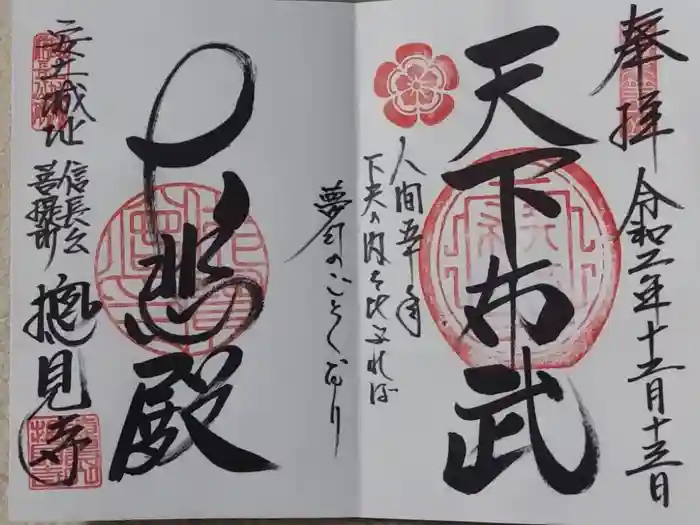 奉拝
令和二年十二月十三日
天下布武
人間五十年
下天の内をくらぶれば
夢幻のごとくなり
大悲殿
安土城址
信長公
菩提所
摠見寺